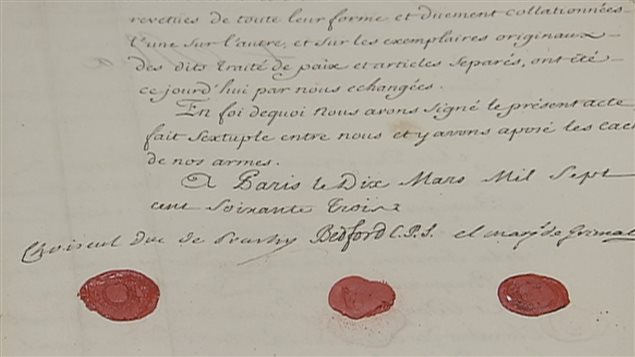 revetües de toute leur forme et duement collationnées
l'une sur l'autre, et sur les exemplaires originaux
des dits traité de paix et articles séparés, ont été
ce jourd'hui par nous échangés.
En foi dequoi Nous avons signé le présent acte
fait Sextuple entre nous et y avons aposé les cac
de nos armes.
A Paris le Dix Mars Mil Sept
cent Soixante Trois
Choiseul Duc de Praslin Bedford C.P.S. el marq.s de Grimal